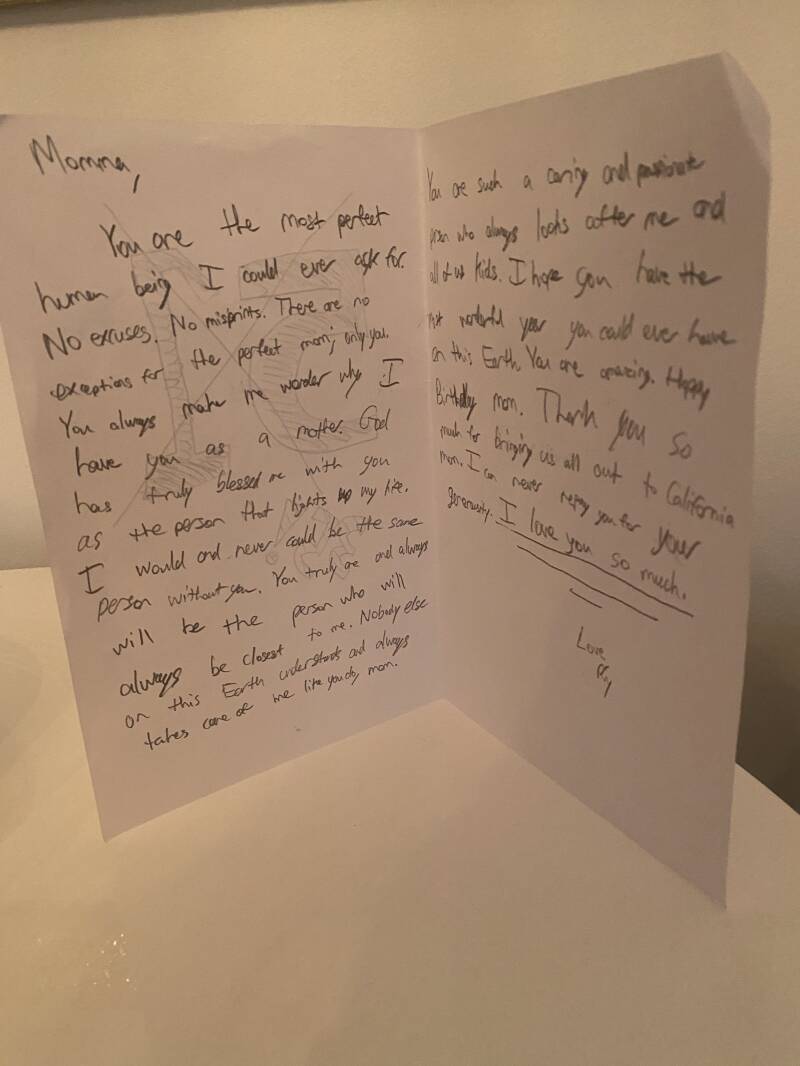 Momma,
You are the most perfect
human being I could ever ask for.
No excuses. No misprints. There are no
exceptions for the perfect mom; only you.
You always make me wonder why I
have you as a mother. God
has truly blessed me with you
as the person that lights up my life.
I would and never could be the same
person without you. You truly are and always
will be the person who will
always be closest to me. Nobody else
on this Earth understands and always
takes care of me like you do, mom.
You are such a caring and passionate
person who always looks after me and
all of us kids. I hope you have the
most wonderful year you could ever have
on this Earth. You are amazing. Happy
Birthday mom. Thank you so
much for bringing us all out to California
mom. I can never repay you for your
generosity. I love you so much.
Love,